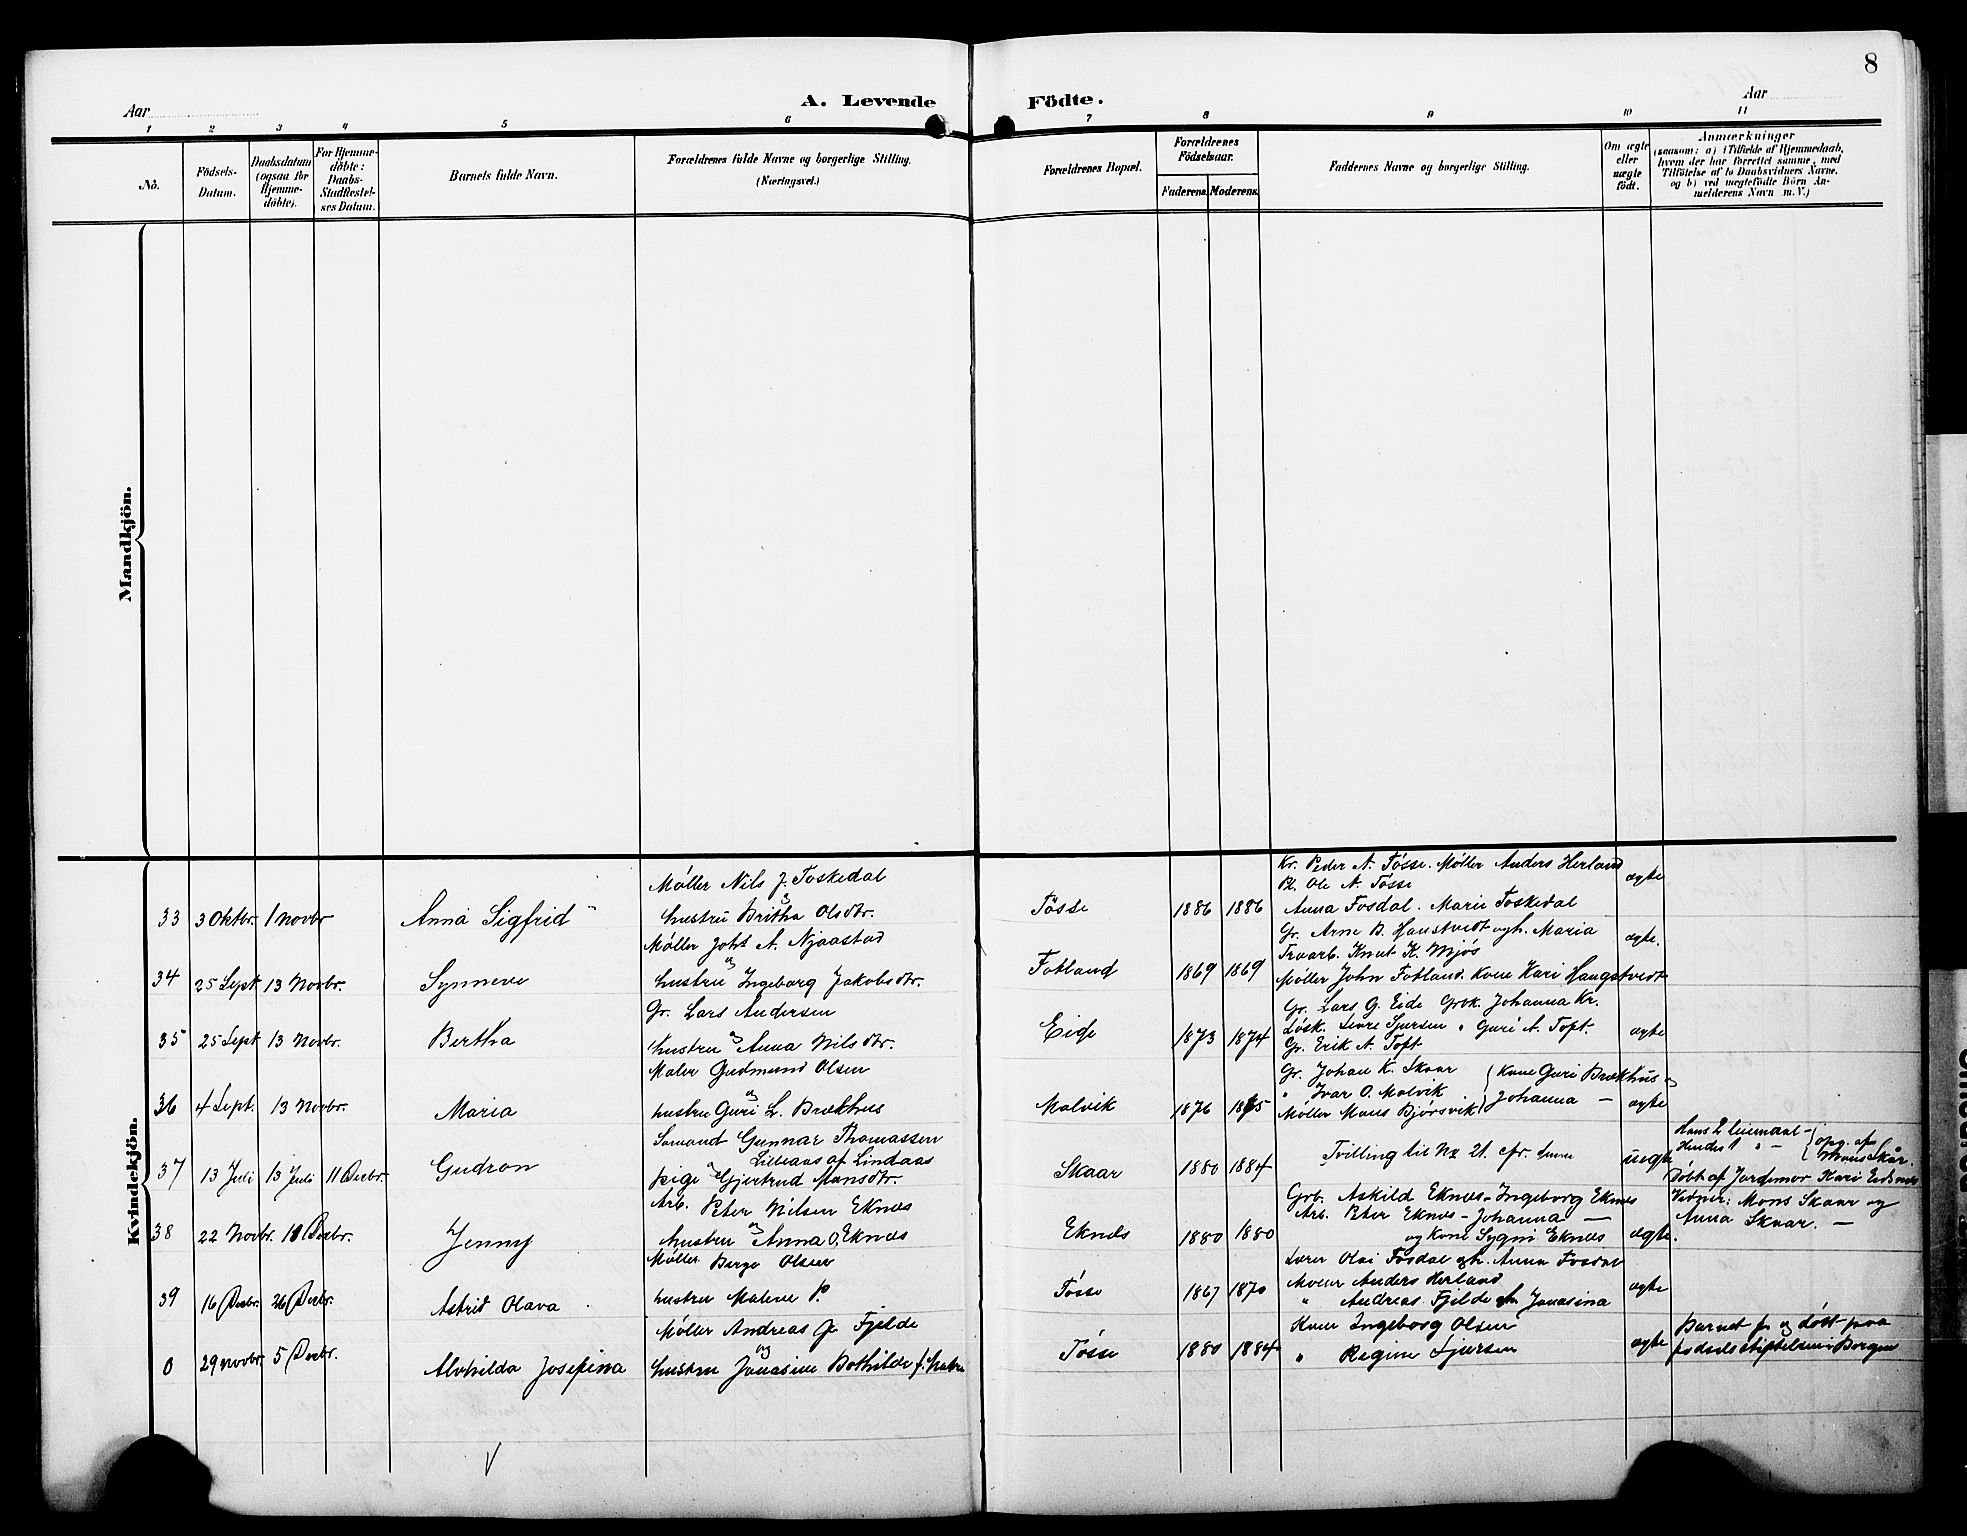 8
Aar
A. Levende
Födte.
Aar
1 2 3 4 5 6 7 8 9 10 11
No.
Födsels-
Datum.
Daabsdatum
(ogsaa for
Hjemme-
döbte).
For Hjemme-
döbte:
Daabs-
Stadfestel-
ses Datum.
Barnets fulde Navn.
Forældrenes fulde Navne og borgerlige Stilling.
(Næringsvei.)
Forældrenes Bopæl.
Forældrenes
Födselsaar.
Faderens.
Moderens.
Faddernes Navne og borgerlige Stilling.
Om ægte
eller
uægte
födt.
Anmærkninger
(saasom: a) i Tilfælde af Hjemmedaab,
hvem der har forrettet samme, med
Tilföielse af to Daabsvidners Navne,
og b) ved uægtefödte Börn An-
melderens Navn m. V.)
Mandkjön.
Kvindekjön.
33 3 Oktbr. 1 Novbr
Anna Sigfrid
Møller Nils J. Toskedal
og
hustru Britha Olsdtr.
Tösse
1886 1886
Kr. Peder A. Tösse. Møller Anders Herland
Ole A. Tösse
Anna Fosdal. Marie Toskedal
ægte
34 25 Sept 13 Novbr.
Synneve
Møller Johs A. Njaastad
og
hustru Ingeborg Jakobsdtr.
Fotland
1869 1869
Gr. Arne B. Haustvedt og h. Maria
Knut K. Mjös
Møller John Fotland. Kone Kari Haugstvedt
ægte.
35 25 Sept 13 Novbr.
Bertha
Gr. Lars Andersen
og
hustru Anna Nilsdtr.
Eide
1873 1874
Gr. Lars G. Eide Grbk. Johanna Kr.
Løsk. Sjursen " Guri A. Toft.
Gr. Erik A. Toft
ægte
36 4 Sept. 13 Novbr.
Maria
Maler Gudmund Olsen
og
hustru Guri L. Brækhus
Malvik
1876
Gr. Johan K. Skaar
" Ivar O. Malvik
Møller Mons Bjørsvik
Kone Guri Brækhus
Johanna —
ægte
37 13 Juli 13 Juli 11 Decbr.
Gudron
Sømand Gunnar Thomassen
Lilleaas af Lindaas
og
pige Gjertrud Monsdtr.
Skaar
1880 1884
Tvilling til No 21. cfr.
uegte
Hans 2
Hendes 1 " —
opg. af
Mons Skår.
Döbt af Jordemor Kari Eidsnes
Vidner: Mons Skaar og
Anna Skaar. —
38 22 Novbr. 11 Decbr.
Jenny
Arb. Peter Nilsen Eknes
og
hustru Anna O. Eknes
Eknes
1880 1880
Grb. Askild Eknes – Ingeborg Eknes
Arb. Peter Eknes – Johanna —
og Kone Sygni Eknes
ægte.
39 16 Decbr. 26 Decbr.
Astrid Olava
Møller Berge Olsen
hustru Malene P.
Tösse
1867 1870
Lærer Olai Fosdal og h. Anna Fosdal
Møller Anders Herland
" Andreas Fjelde og h. Jonasina
ægte
0 29 novbr. 5 Decbr.
Alvhilda Josefina
Møller Andreas J. Fjelde
og
hustru Jonasine Bothilde f.
Tösse
1880 1884
Kone Ingeborg Olsen
" Regine Sjursen
ægte
Barnet f. og döbt paa
fødselsstiftelsen i Bergen
V